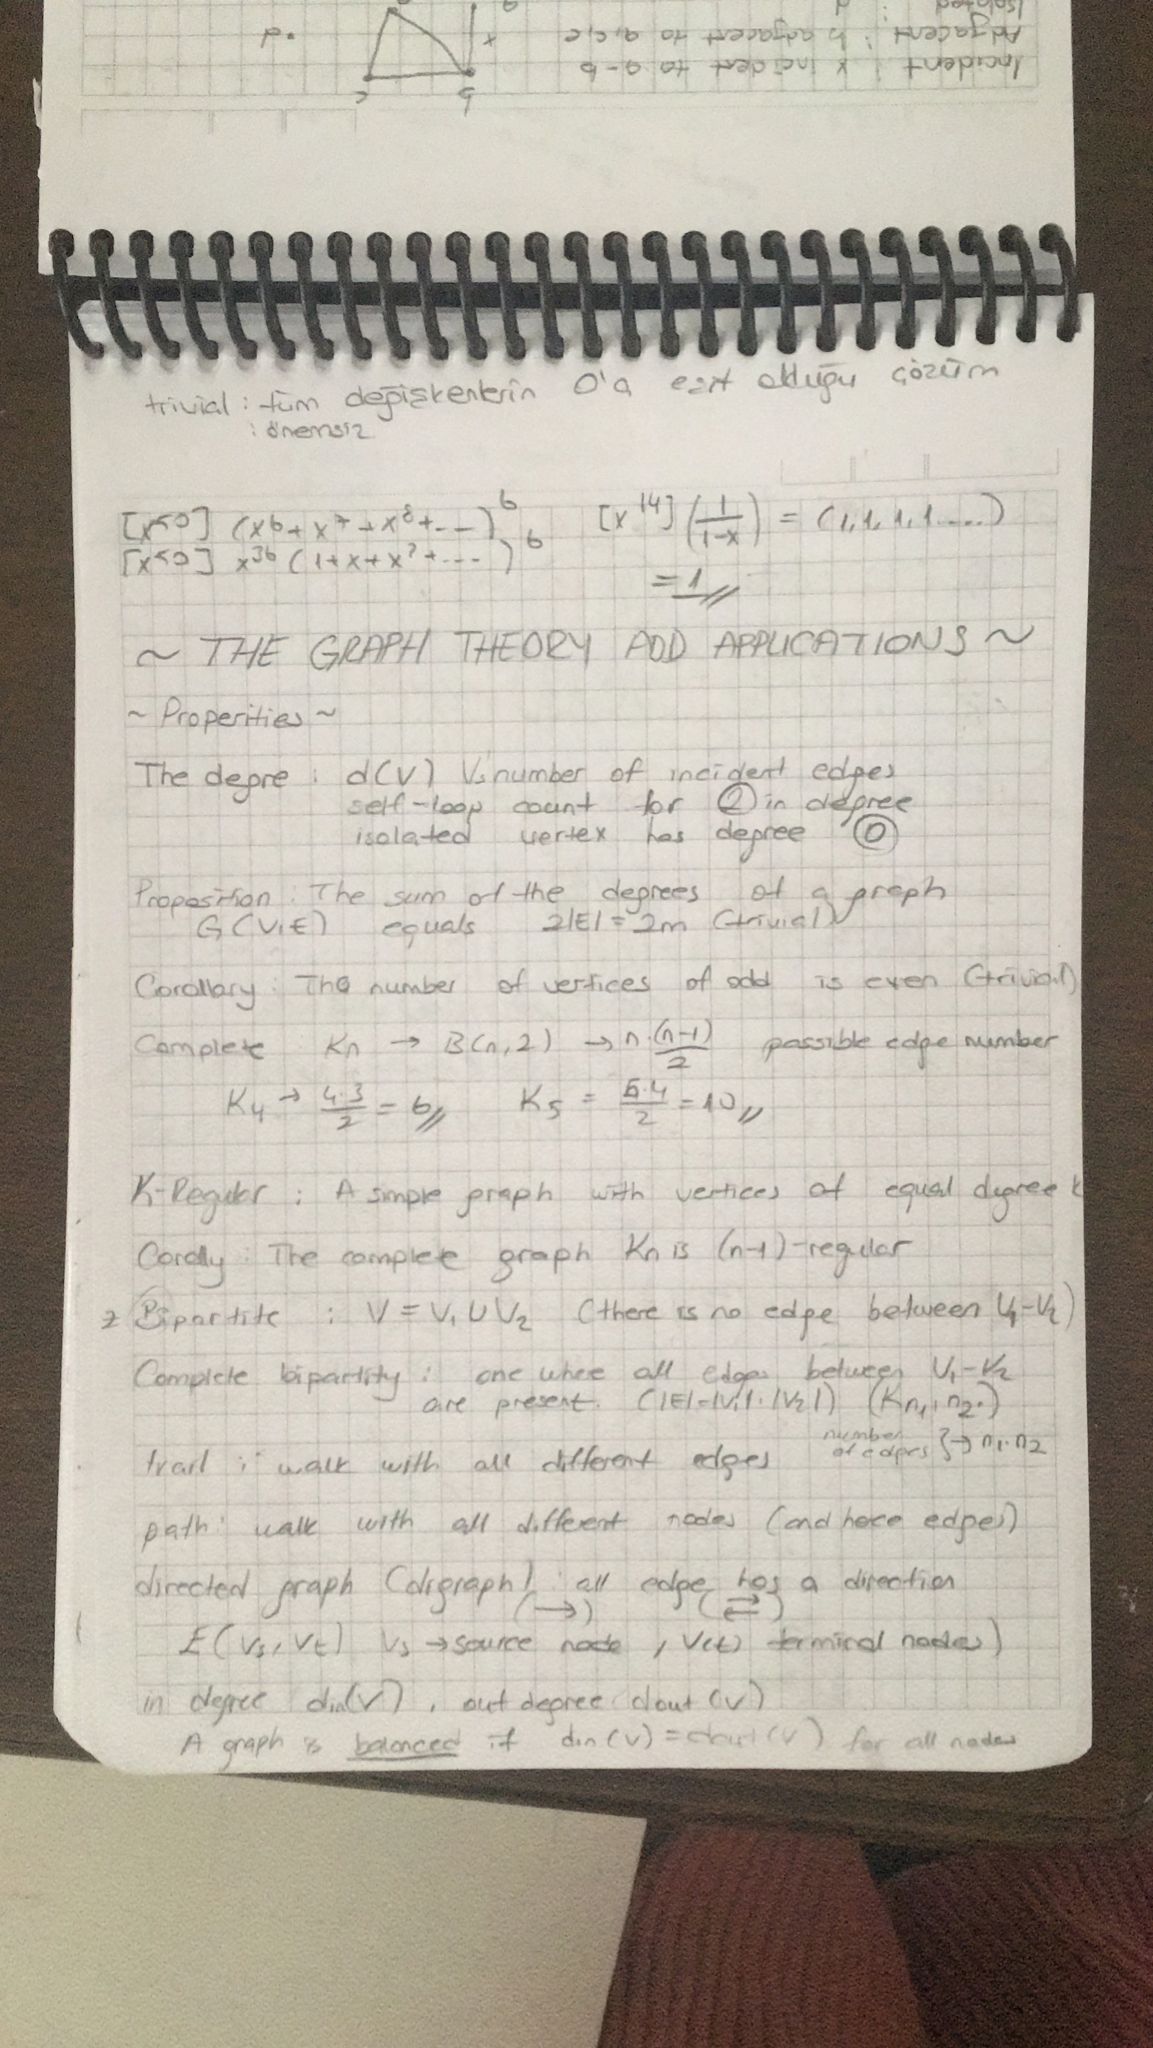 Incident : x incident to a-b
Adjacent : b adjacent to a,c,e
Isolated : d
c
b
x
d
trivial : tüm değişkenlerin 0'a eşit olduğu çözüm
: önemsiz
[x^50] (x^6 + x^7 + x^8 + ...)^6
[x^50] x^36 (1+x+x^2+ ....)^6
[x^14] (1/(1-x)) = (1,1,1,1.....)
= 1//
~ THE GRAPH THEORY ADD APPLICATIONS ~
~ Properities ~
The degre : d(V) ↳ number of incident edges
self-loop count for ② in degree
isolated vertex has degree ⓪
Proposition : The sum of the degrees of a graph
G(V,E) equals 2|E| = 2m (trivial)
Corollary : The number of vertices of odd is even (trivial)
Complete Kn → B(n,2) → n.(n-1)/2 possible edge number
K4 → 4.3/2 = 6// K5 = 5.4/2 = 10//
K-Regular : A simple graph with vertices of equal degree k
Corolly : The complete graph Kn is (n-1)-regular
2 Bipartite : V = V1 U V2 (there is no edge between V1-V2)
Complete bipartity : one where all edges between V1-V2
are present. (|E|=|V1|.|V2|) (Kn1,n2.)
number of edges } → n1.n2
trail : walk with all different edges
path : walk with all different nodes (and hece edges)
directed graph (digraph) : all edge has a direction
(→) (⇄)
E(Vs, Vt) Vs → source node , V(t) terminal nodes)
in degree din(V) , out degree dout(V)
A graph is balanced if din(V) = dout(V) for all nodes